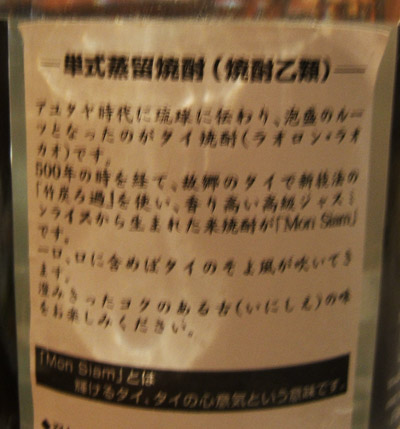 単式蒸留焼酎(焼酎乙類)
アユタヤ時代に琉球に伝わり、泡盛のルー
ツとなったのがタイ焼酎(ラオロン・ラオ
カオ)です。
500年の時を経て、故郷のタイで新技法の
「竹炭ろ過」を使い、香り高い高級ジャスミ
ンライスから生まれた米焼酎が「Mon Siam」
です。
一口、口に含めばタイのそよ風が吹いてき
ます。
澄みきったコクのある古(いにしえ)の味
をお楽しみください。
「Mon Siam」とは
輝けるタイ、タイの心意気という意味です。